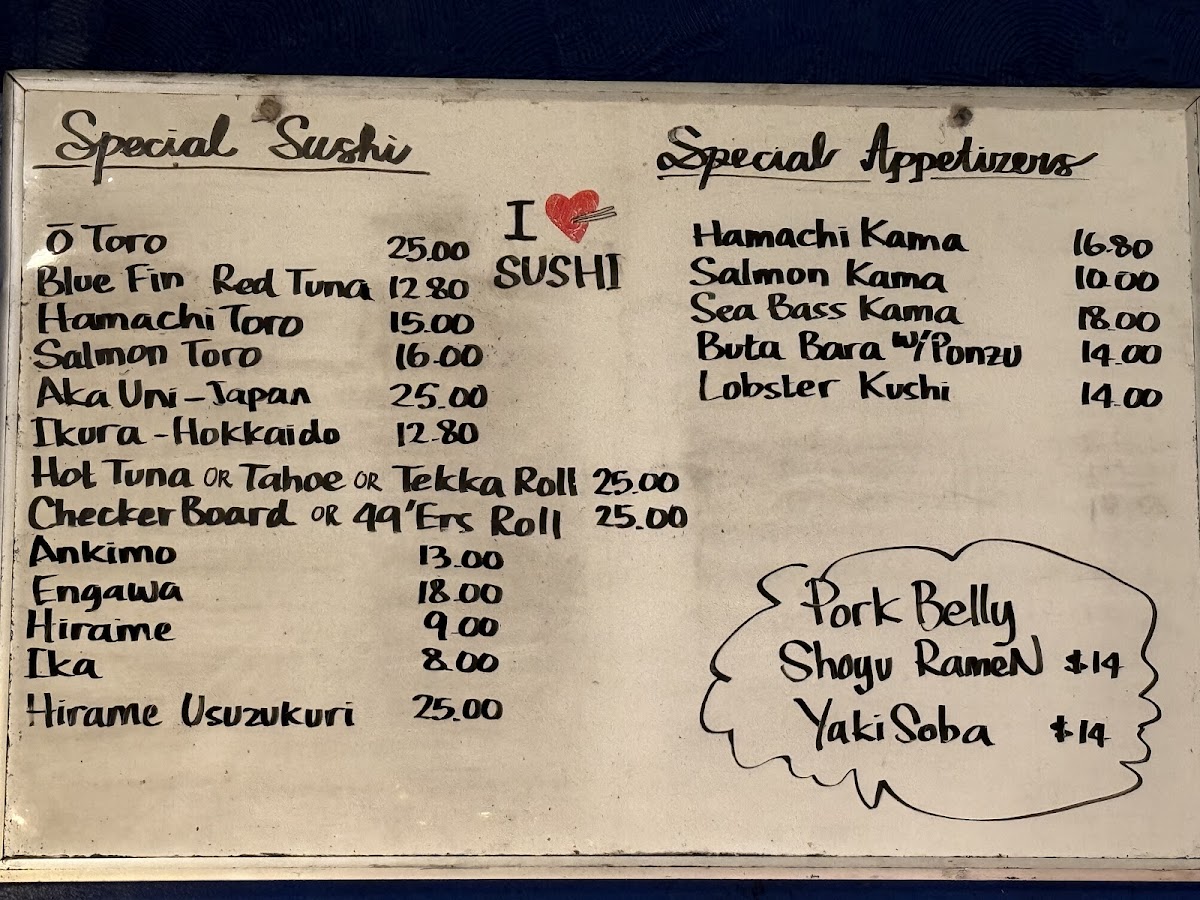 Special Sushi
Ō Toro 25.00
Blue Fin Red Tuna 12.80
Hamachi Toro 15.00
Salmon Toro 16.00
Aka Uni - Japan 25.00
Ikura - Hokkaido 12.80
Hot Tuna OR Tahoe OR Tekka Roll 25.00
Checker Board OR 49'Ers Roll 25.00
Ankimo 13.00
Engawa 18.00
Hirame 9.00
Ika 8.00
Hirame Usuzukuri 25.00
I
SUSHI
Special Appetizers
Hamachi Kama 16.80
Salmon Kama 10.00
Sea Bass Kama 18.00
Buta Bara w/ Ponzu 14.00
Lobster Kushi 14.00
Pork Belly
Shoyu RameN $14
Yaki Soba $14